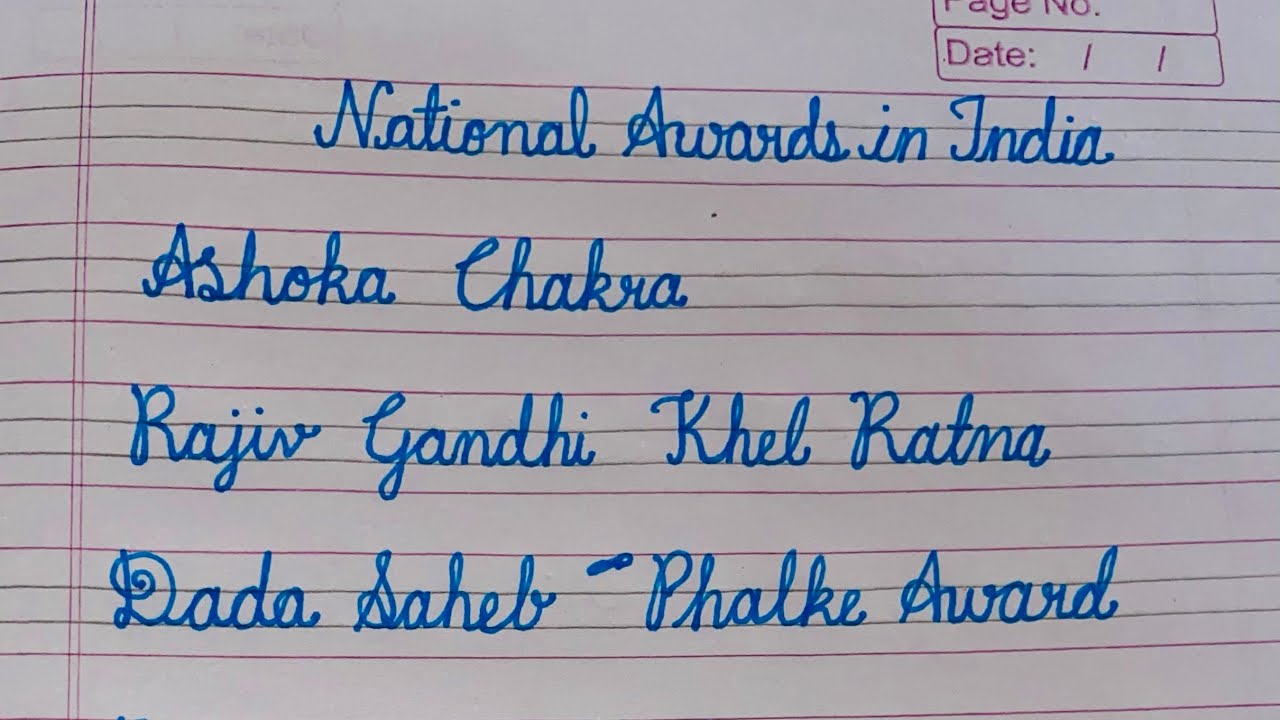 Page No.
Date: / /
National Awards in India
Ashoka Chakra
Rajiv Gandhi Khel Ratna
Dada Saheb Phalke Award